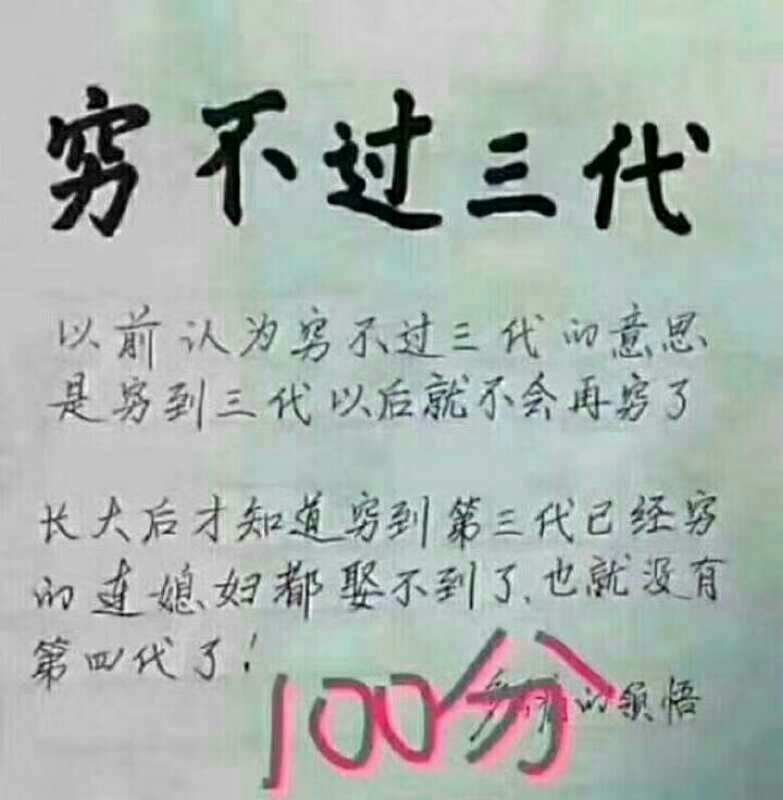 穷不过三代
以前认为穷不过三代的意思
是穷到三代以后就不会再穷了
长大后才知道穷到第三代已经穷
的连媳妇都娶不到了、也就没有
第四代了！
的领悟
100分